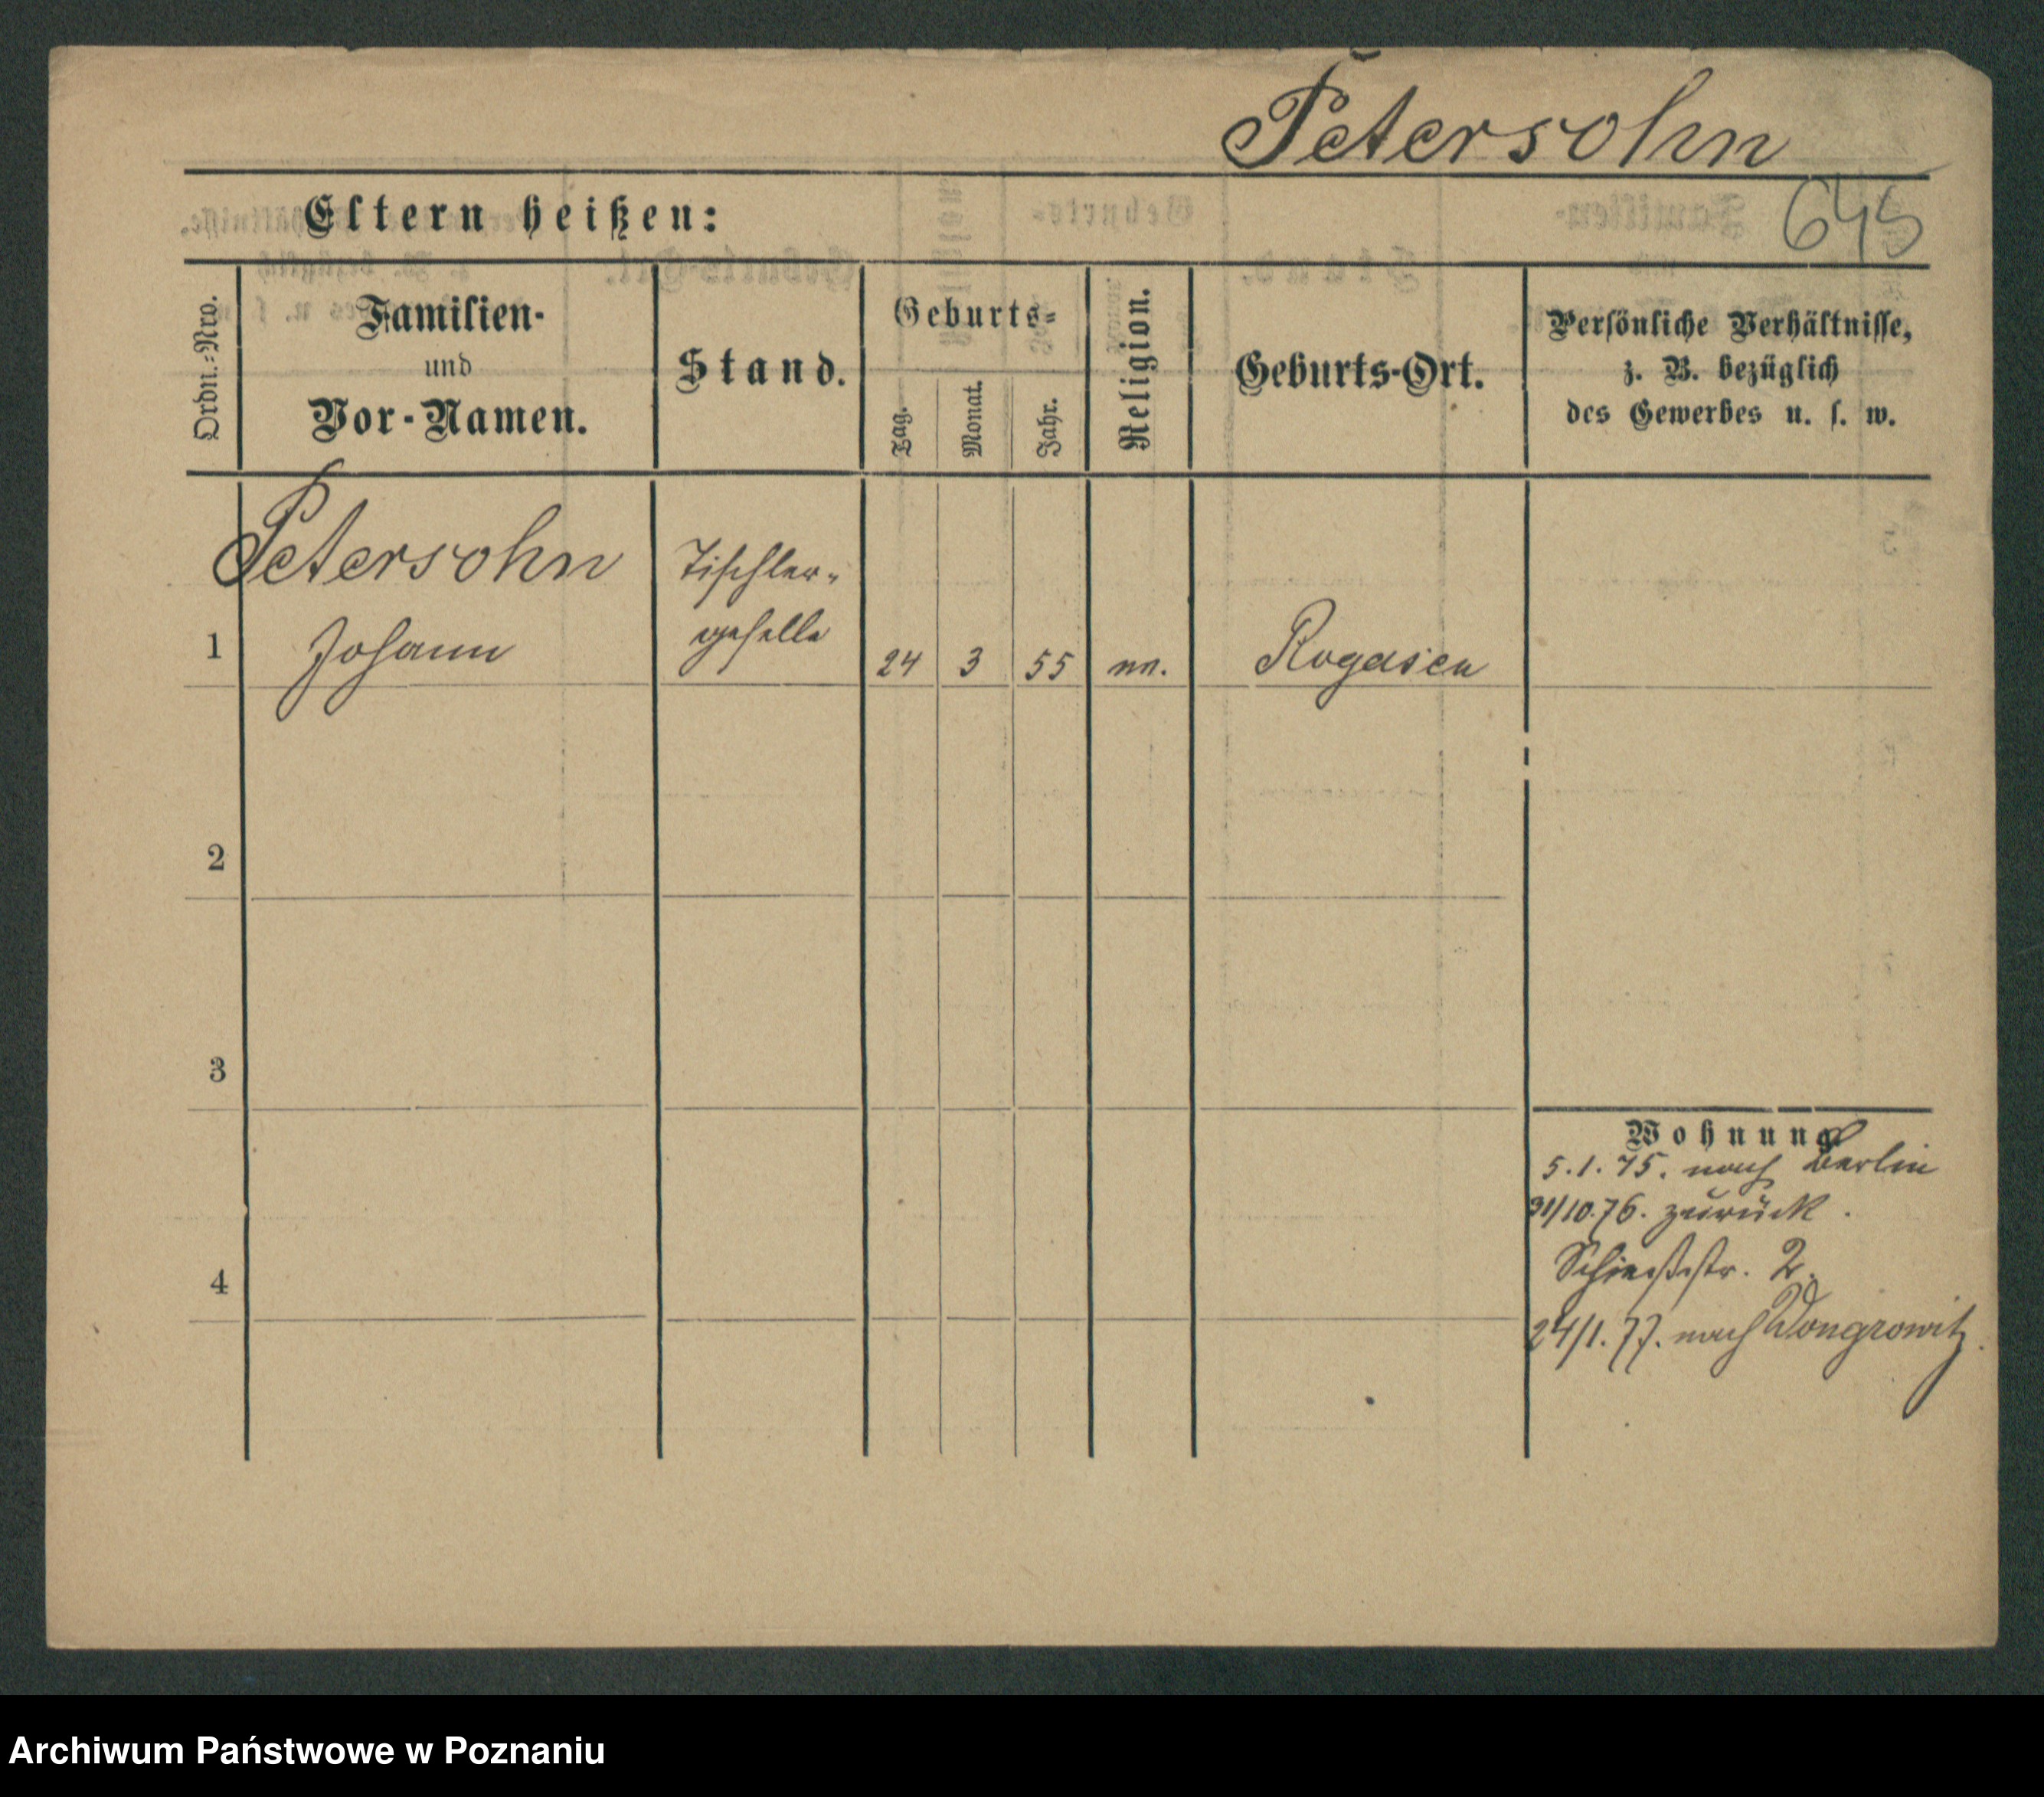 Petersohn
645
Eltern heißen:
Ordn.-Nro.
Familien-
und
Vor-Namen.
Stand.
Geburts-
Tag.
Monat.
Jahr.
Religion.
Geburts-Ort.
Persönliche Verhältnisse,
z. B. bezüglich
des Gewerbes u. s. w.
Petersohn
Tischler-
1 Johann geselle 24 3 55 Rogasen
2
3
Wohnung
5.1.75. nach Berlin
31/10.76. zurück.
4
Schießstr. 2.
24/1.77. nach Wongrowitz.
Archiwum Państwowe w Poznaniu